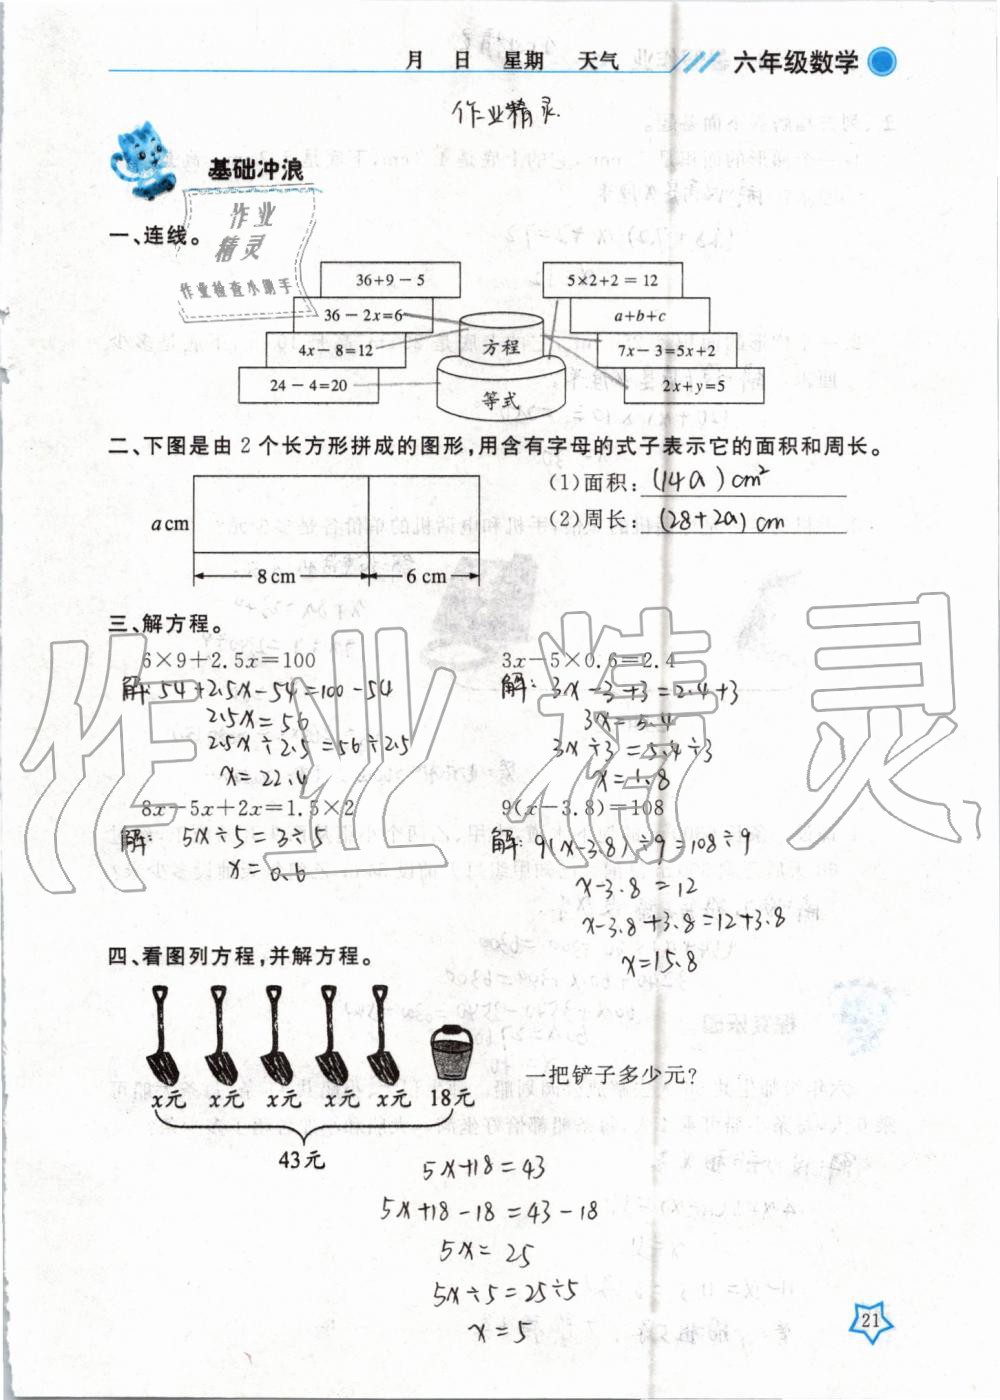 月 日 星期 天气 六年级数学
作业精灵
基础冲浪
作业
精灵
作业检查小助手
一、连线。
36+9－5
5×2+2＝12
36－2x=6
a+b+c
4x－8=12
方程
7x－3=5x+2
24－4=20
等式
2x+y=5
二、下图是由2个长方形拼成的图形,用含有字母的式子表示它的面积和周长。
(1)面积: (14a)cm²
a cm
(2)周长: (28+2a)cm
8 cm 6 cm
三、解方程。
6×9+2.5x=100
解: 54+2.5x-54=100-54
2.5x=56
2.5x÷2.5=56÷2.5
x=22.4
3x－5×0.6=2.4
解: 3x-3+3=2.4+3
3x=5.4
3x÷3=5.4÷3
x=1.8
8x－5x+2x=1.5×2
解: 5x÷5=3÷5
x=0.6
9(x－3.8)=108
解: 9(x-3.8)÷9=108÷9
x-3.8=12
x-3.8+3.8=12+3.8
x=15.8
四、看图列方程,并解方程。
一把铲子多少元?
x元 x元 x元 x元 x元 18元
43元
5x+18=43
5x+18-18=43-18
5x=25
5x÷5=25÷5
x=5
21
作业精灵